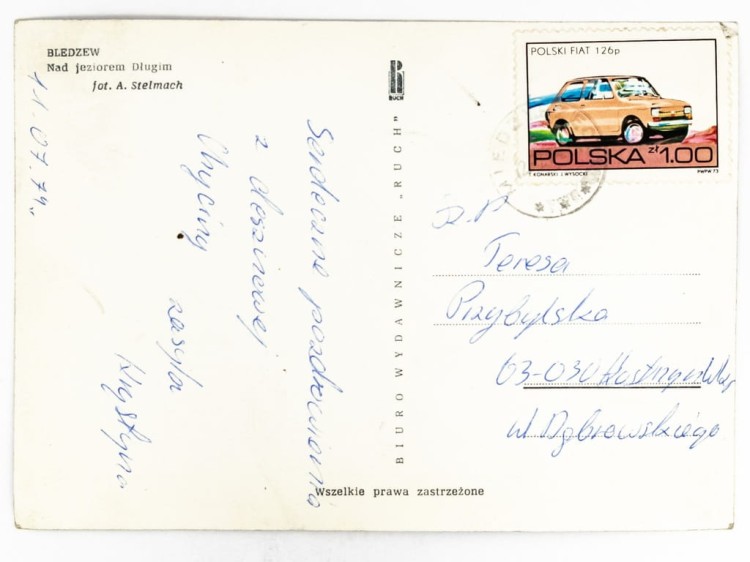 BLEDZEW
Nad jeziorem Długim
fot. A. Stelmach
11.07.74.
Serdeczne pozdrowienia
z deszczowej
zasyła
Krystyna
BIURO WYDAWNICZE „RUCH”
RUCH
POLSKI FIAT 126p
POLSKA zł 1.00
T. KONARSKI J. WYSOCKI
PWPW 73
Teresa
Przybylska
63-030
ul Dąbrowskiego
Wszelkie prawa zastrzeżone